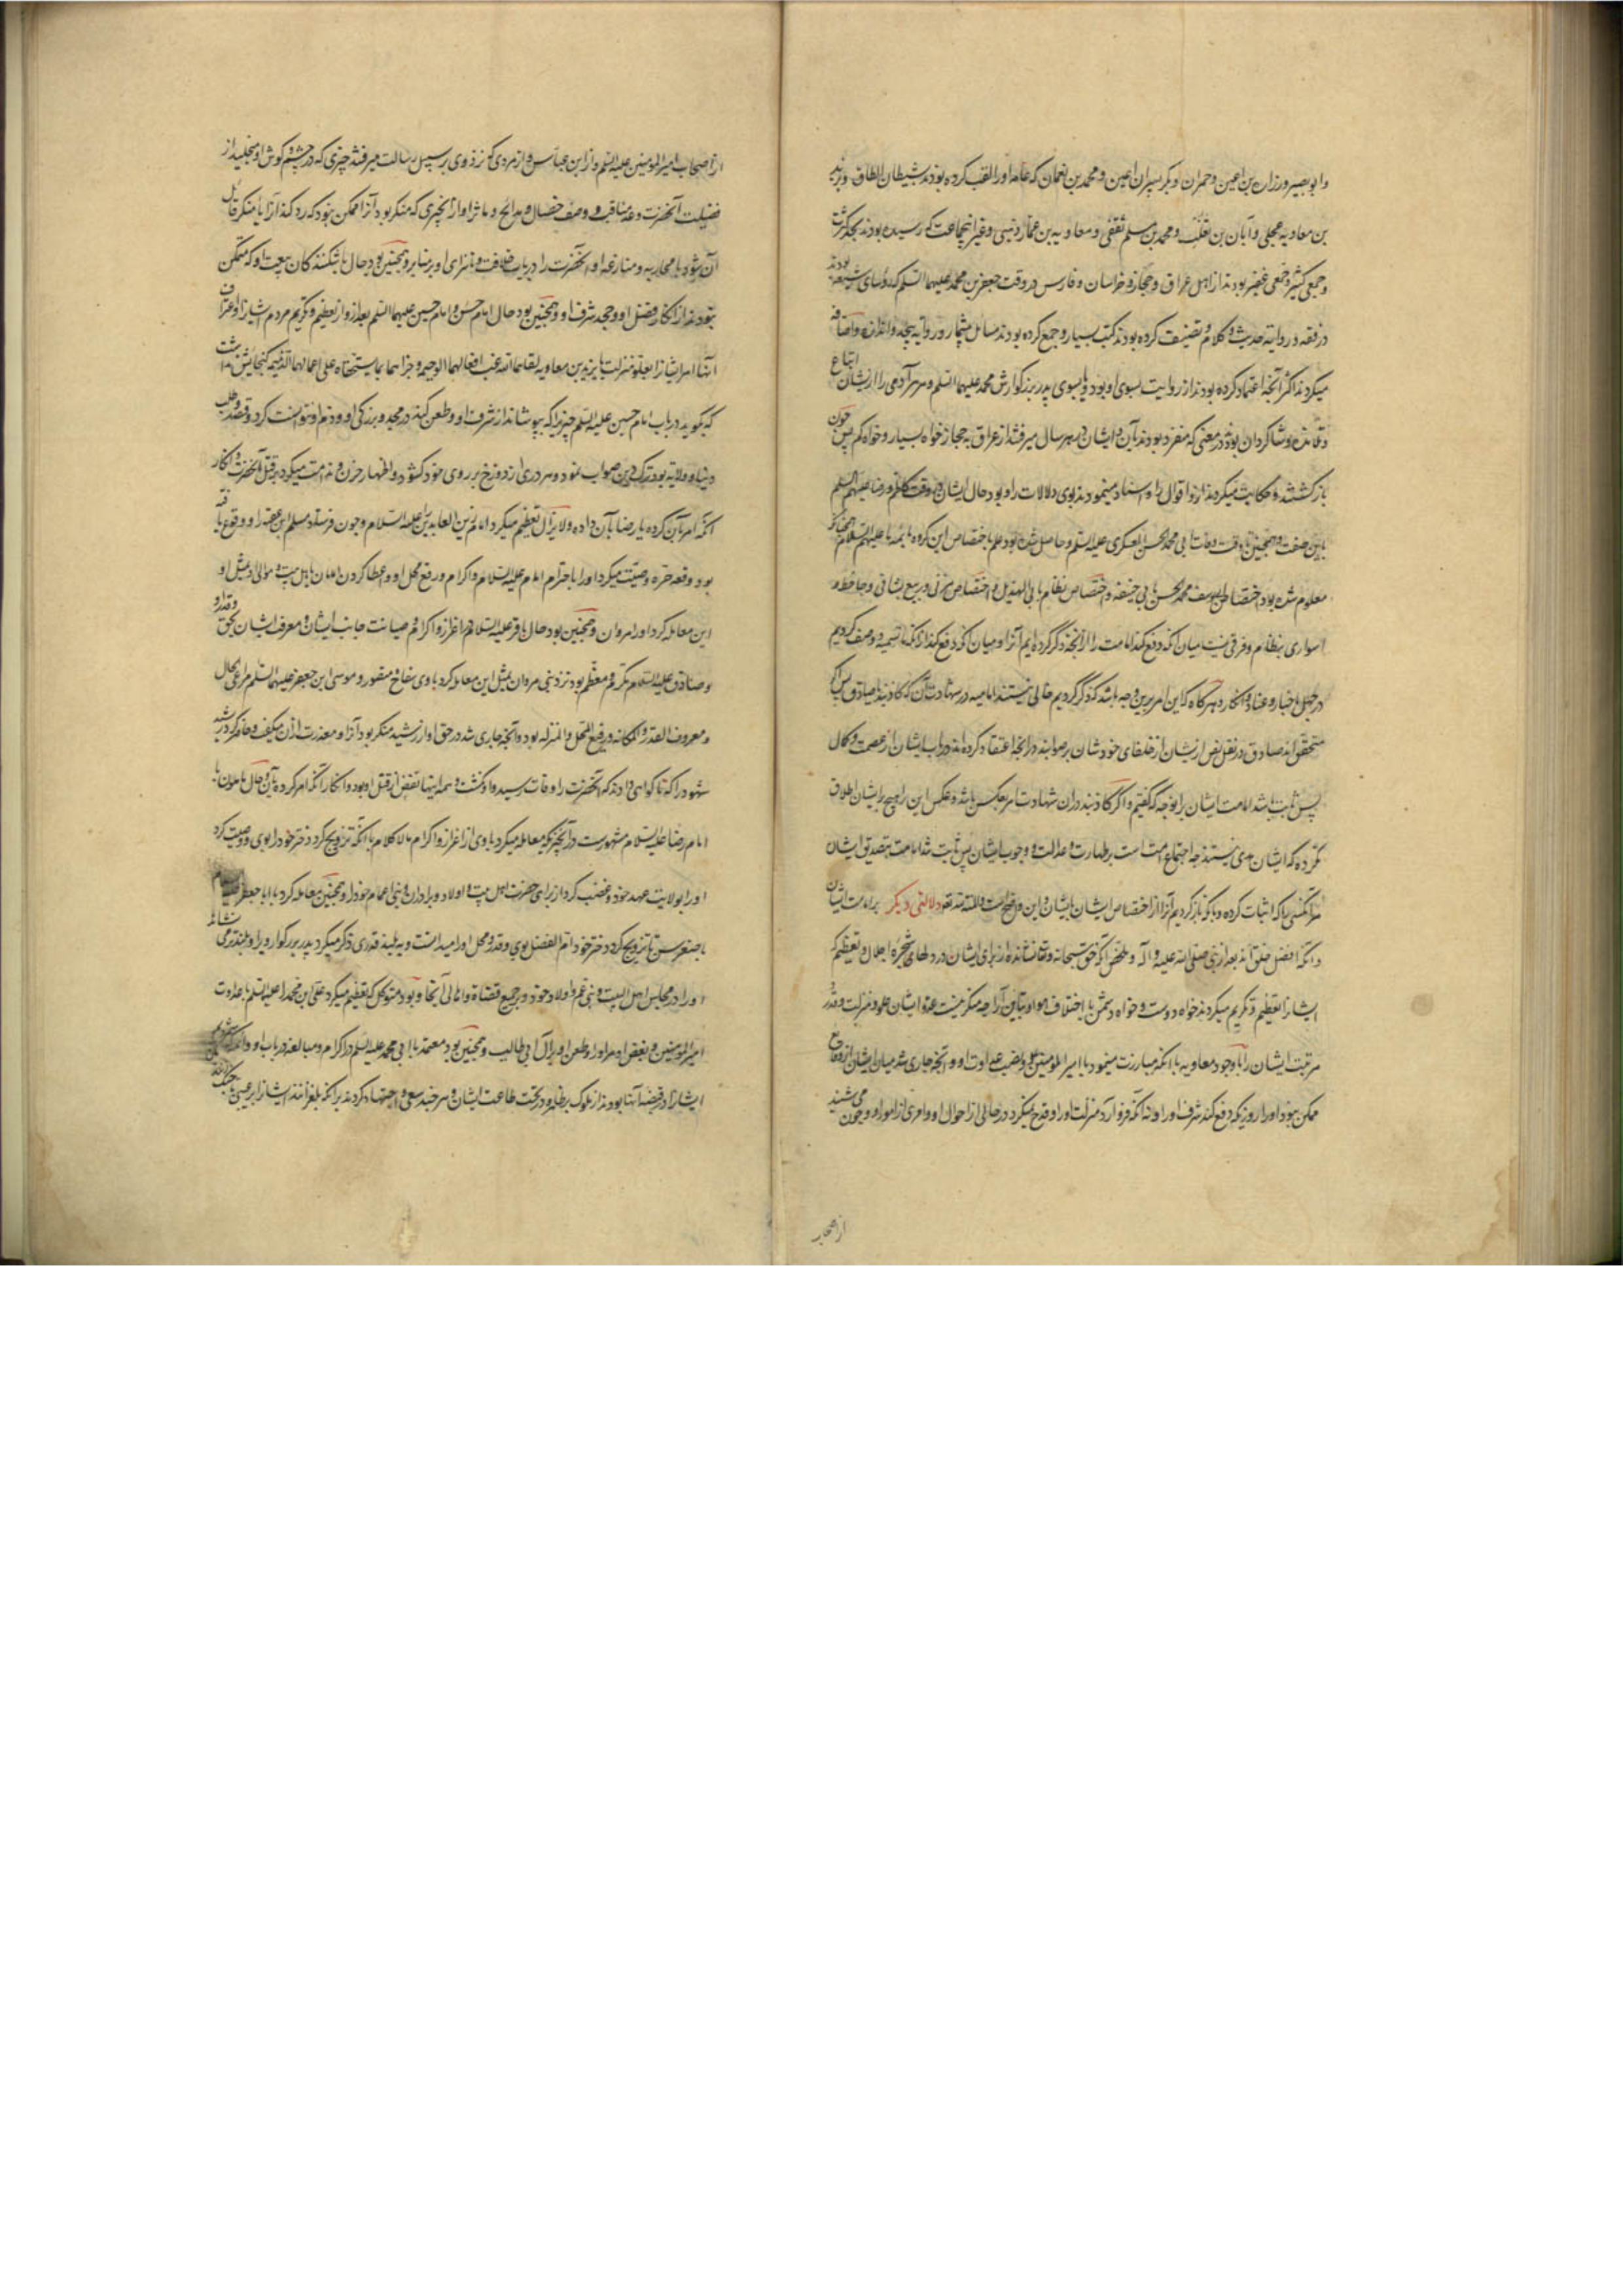 وابو بصیر وزراره بن اعین وحمران وبکر پسران اعین ومحمد بن نعمان که عامه اورا لقب کرده بودند بشیطان الطاق وبرید
بن معاویه عجلی وابان بن تغلب ومحمد بن مسلم ثقفی ومعاویه بن عمار دهنی وغیر اینجماعت که رسیده بودند بحد کثرت
وجمعی کثیر وجمعی غفیر بودند از اهل عراق وحجاز وخراسان وفارس در وقت جعفر بن محمد علیهما السلم که رؤسای شیعه بودند
در فقه و روایة حدیث وکلام وتصنیف کرده بودند کتب بسیار وجمع کرده بودند مسائل بیشمار و روایة بیحد واندازه واضافه
میکردند اکثر آنچه اعتماد کرده بودند از روایت بسوی او بود یا بسوی پدر بزرکوارش محمد علیهما السلم وهر آدمی را از یشان اتباع
وتلامذه وشاکردان بود در معنی که منفرد بودند بآن وایشان در هر سال میرفتند از عراق به حجاز خواه بسیار وخواه کم پس چون
باز کشتند وحکایت میکردند ازو اقوال را واسناد مینمودند بوی دلالات را وبود حال ایشان در وقت کاظم ورضا علیهم السلم
باین صفت وهمچنین تا وقت وفات ابی محمد الحسن العسکری علیه السلم وحاصل شده بود علم باختصاص این کروه بائمه ما علیهم السلام همچنانکه
معلوم شده بود اختصاص ابو یوسف ومحمد الحسن بابی حنیفه واختصاص نظام بابی الهذیل واختصاص مزنی و ربیع بشافعی وجاحظ و
اسواری بنظام وفرقی نیست میان آنکه دفع کند امامت را از آنچه ذکر کرده ایم آنرا ومیان آنکه دفع کند از آنکه تسمیه و وصف کردیم
در جهل باخبار وعناد وانکار وهرکاه که این امر برین وجه باشد که ذکر کردیم خالی نیستند امامیه در شهادت آن که کاذبند یا صادق پس اکر
متحقق اند صادق در نقل نص از یشان از خلفای خودشان بر صوابند در آنچه اعتقاد کرده اند در باب ایشان از عصمت وکمال
پس ثابت باشد امامت ایشان را بوجه که کفتیم واکر کاذبند در ان شهادت امر بعکس باشد وعکس این راهیچ برایشان اطلاق
نکرده که ایشان مدعی نیستند چه اجتماع امت است بر طهارت وعدالت و وجوب ایشان پس ثابت شد امامت بتصدیق ایشان
مر آنکسی را که اثبات کرده وباکو باز کردیم آنرا از اختصاص ایشان بایشان واین واضح است والمنة لله تقه دلالتی دیکر بر امامت ایشان
وآنکه افضل خلق اند بعد از نبی صلی الله علیه و آله وملخص آنکه حق سبحانه وتعالی نشانده از برای ایشان در دلهای اجلال وتعظیم که
ایشانرا تعظیم وتکریم میکردند خواه دوست وخواه دشمن با اختلاف اهوا وتباین آرا چه منکر نیست عدو ایشان علو ومنزلت وقدر و
مرتبت ایشان را باوجود معاویه با آنکه مبارزت مینمود با امیر المؤمنین ونصب عداوت او وآنچه جاری شد میان ایشان از وقایع
ممکن نبود اورا روزی که دفع کند شرف اورا ونه آنکه فرو آرد منزلت اورا وقدح نمیکرد در حالی از احوال او وامری از امور او وچون می شنید
از اصحاب
از اصحاب امیر المومنین علیه السلم واز ابن عباس واز مردی که نزد وی بر سبیل رسالت میرفتند چیزی که در چشم وکوش او میخلید از
فضیلت آنحضرت وعد مناقب و وصف خصال ومدایح و مآثر او از آنچیزی که منکر بود آنرا ممکن نبود که رد کند آنرا یا منکر قائل
آن شود با محاربه ومنازعه او آنحضرت را در باب خلافت و ناسزای او بر منابر وهمچنین بود حال ناشکنندکان بیعت او که متمکن
نبودند از انکار فضل او وجحد شرف او وهمچنین بود حال امام حسن وامام حسین علیهما السلم بعد ازو از تعظیم وتکریم مردم ایشانرا واعتراف
آنها مر ایشانرا بعلو منزلت تا یزید بن معاویه لقاهما الله غب افعالهما الوخیم وجزاهما بما یستحقانه علی اعمالهما الذمیمه کنجایش نداشت
که بکوید در باب امام حسین علیه السلم چیزیرا که بپوشاند از شرف او وطعن کند در مجد و بزرکی او وذم او نتوانست کرد وقصد وطلب
دنیا و ولایه بود ترک دین صواب نمود وهر دری از دوزخ بر روی خود کشود واظهار حزن وندامت میکرد در قتل آنحضرت وانکار
آنکه امر بآن کرده یا رضا بآن داده ولا یزال تعظیم میکرد امام زین العابدین علیه السلام وچون فرستاد مسلم ابن عقبه را و وقوع یافته
بود وقعه حره وصیت میکرد اورا باحترام امام علیه السلام واکرام و رفع محل او وعطا کردن امان باهل بیت وموالی ومثل او
این معامله کرد اورا مروان وهمچنین بود حال باقر علیه السلام در اعزاز واکرام وصیانت جانب ایشان ومعرفت ایشان بحق وقدر او
وصادق علیه السلام مکرم ومعظم بود نزد بنی مروان بمثل این معامله کرد با وی سفاح ومنصور وموسی ابن جعفر علیهما السلم مرعی الحال
ومعروف القدر والمکانه و رفیع المحل والمنزله بود وآنچه جاری شد در حق او از رشید منکر بود آنرا ومعذرت از ان میکفت وحاضر کرد رشید
شهود را که تا کواهی دادند که آنحضرت را وفات رسیده و او نکشت وهمه اینها تفصی از قتل او بود وانکار آنکه امر کرده بآن وحال مامون با
امام رضا علیه السلام مشهورست در آنچیزی که معامله میکرد با وی از اعزاز واکرام مالا کلام با آنکه تزویج کرد دختر خود را بوی و وصیت کرد
اورا بولایت عهد خود وغضب کرد از برای حضرت اهل بیت واولاد وبرادران وبنی اعمام خود را وهمچنین معامله کرد با ابا جعفر علیه السلام
با صغر سن تا تزویج کرد دختر خود ام الفضل بوی وقدر ومحل اورا میدانست وببلند قدری ذکر میکرد پدر بزرکوار اورا وبلند میساخت
اورا در مجالس اهل البیت وبنی عم واولاد خود و بر جمیع قضاة واهالی آنجا وبود متوکل که تعظیم میکرد علی ابن محمد را علیه السلم با عداوت
امیر المومنین وبغض او مر اورا وطعن او بر آل ابی طالب وهمچنین بود معتمد با ابی محمد علیه السلم در اکرام ومبالغه در باب او
ایشانرا در قبضه آنها بودند از ملوک بر ظاهر و در تحت طاعت ایشان وهر چند سعی واجتهاد کردند بر آنکه بلغزانند ایشانرا بر عیبی